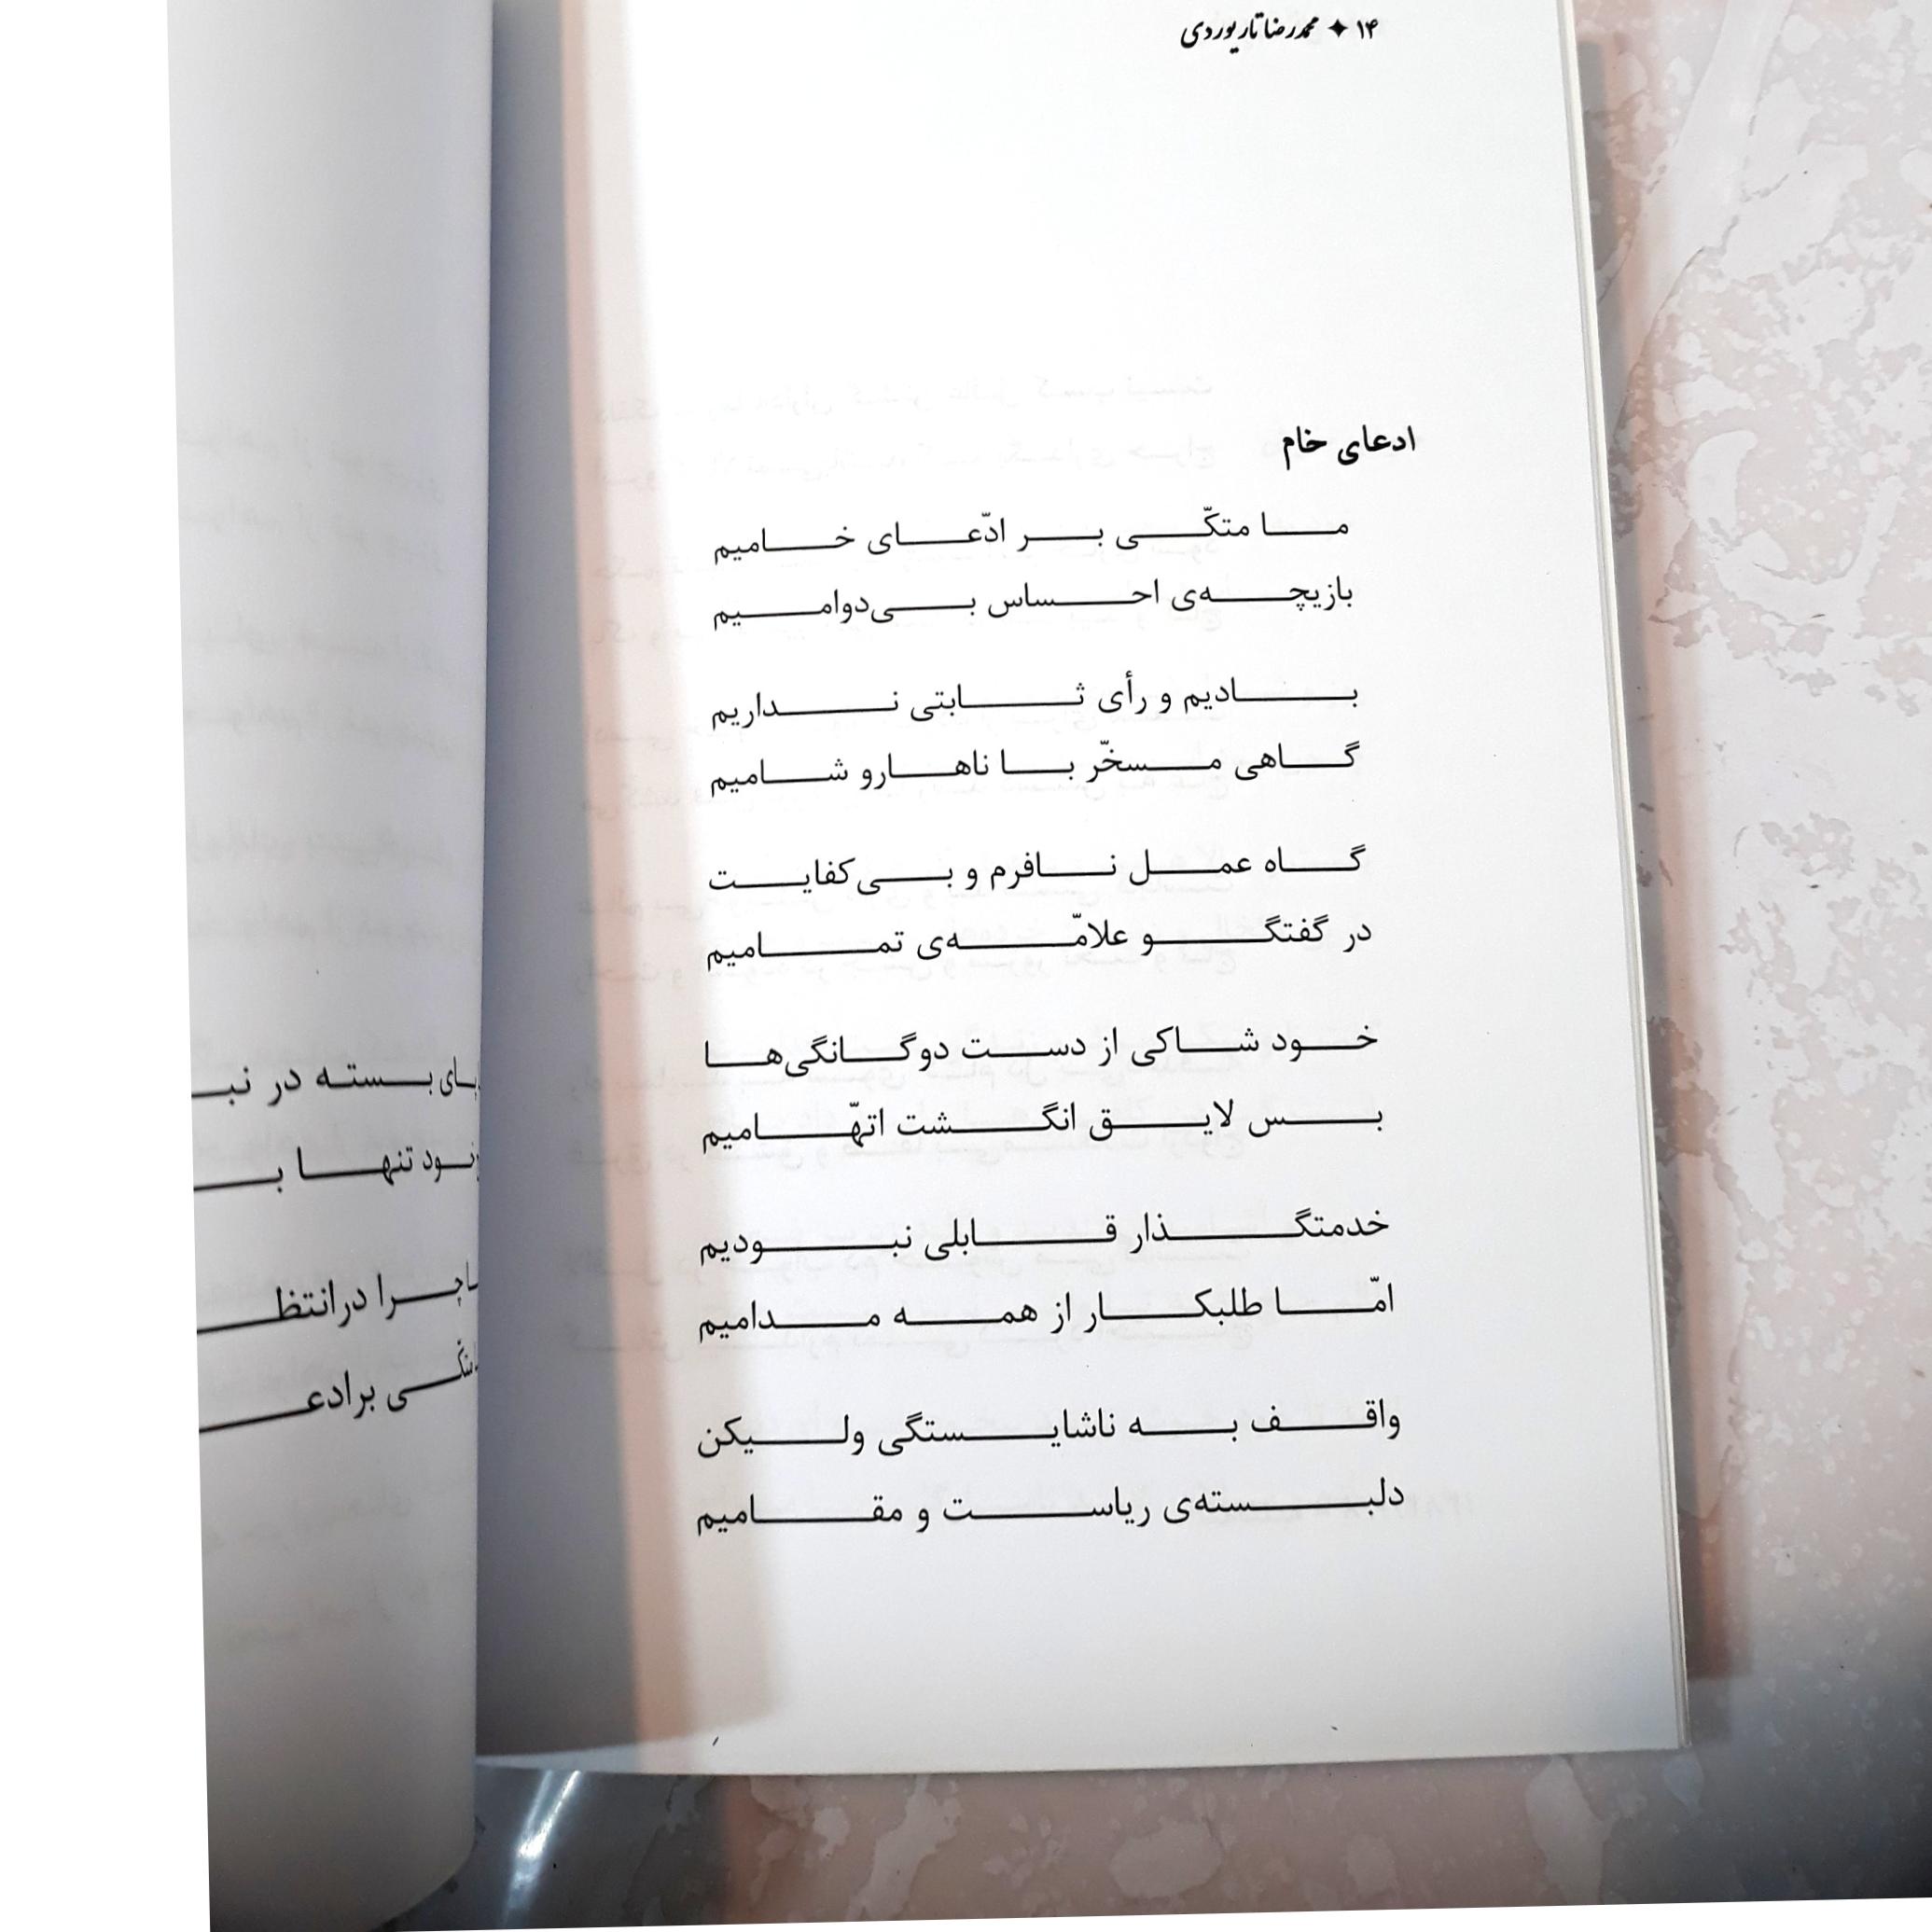 ۱۴ ✦ محمدرضا تاریوردی
ادعای خام
ما متکّی بر ادّعای خامیم
بازیچه‌ی احساس بی‌دوامیم
بادیم و رأی ثابتی نداریم
گاهی مسخّر با ناهارو شامیم
گاه عمل نافرم و بی‌کفایت
در گفتگو علامّه‌ی تمامیم
خود شاکی از دست دوگانگی‌ها
بس لایق انگشت اتهّامیم
خدمتگذار قابلی نبودیم
امّا طلبکار از همه مدامیم
واقف به ناشایستگی ولیکن
دلبسته‌ی ریاست و مقامیم
بسته در
تنها
درانتظ
برادع